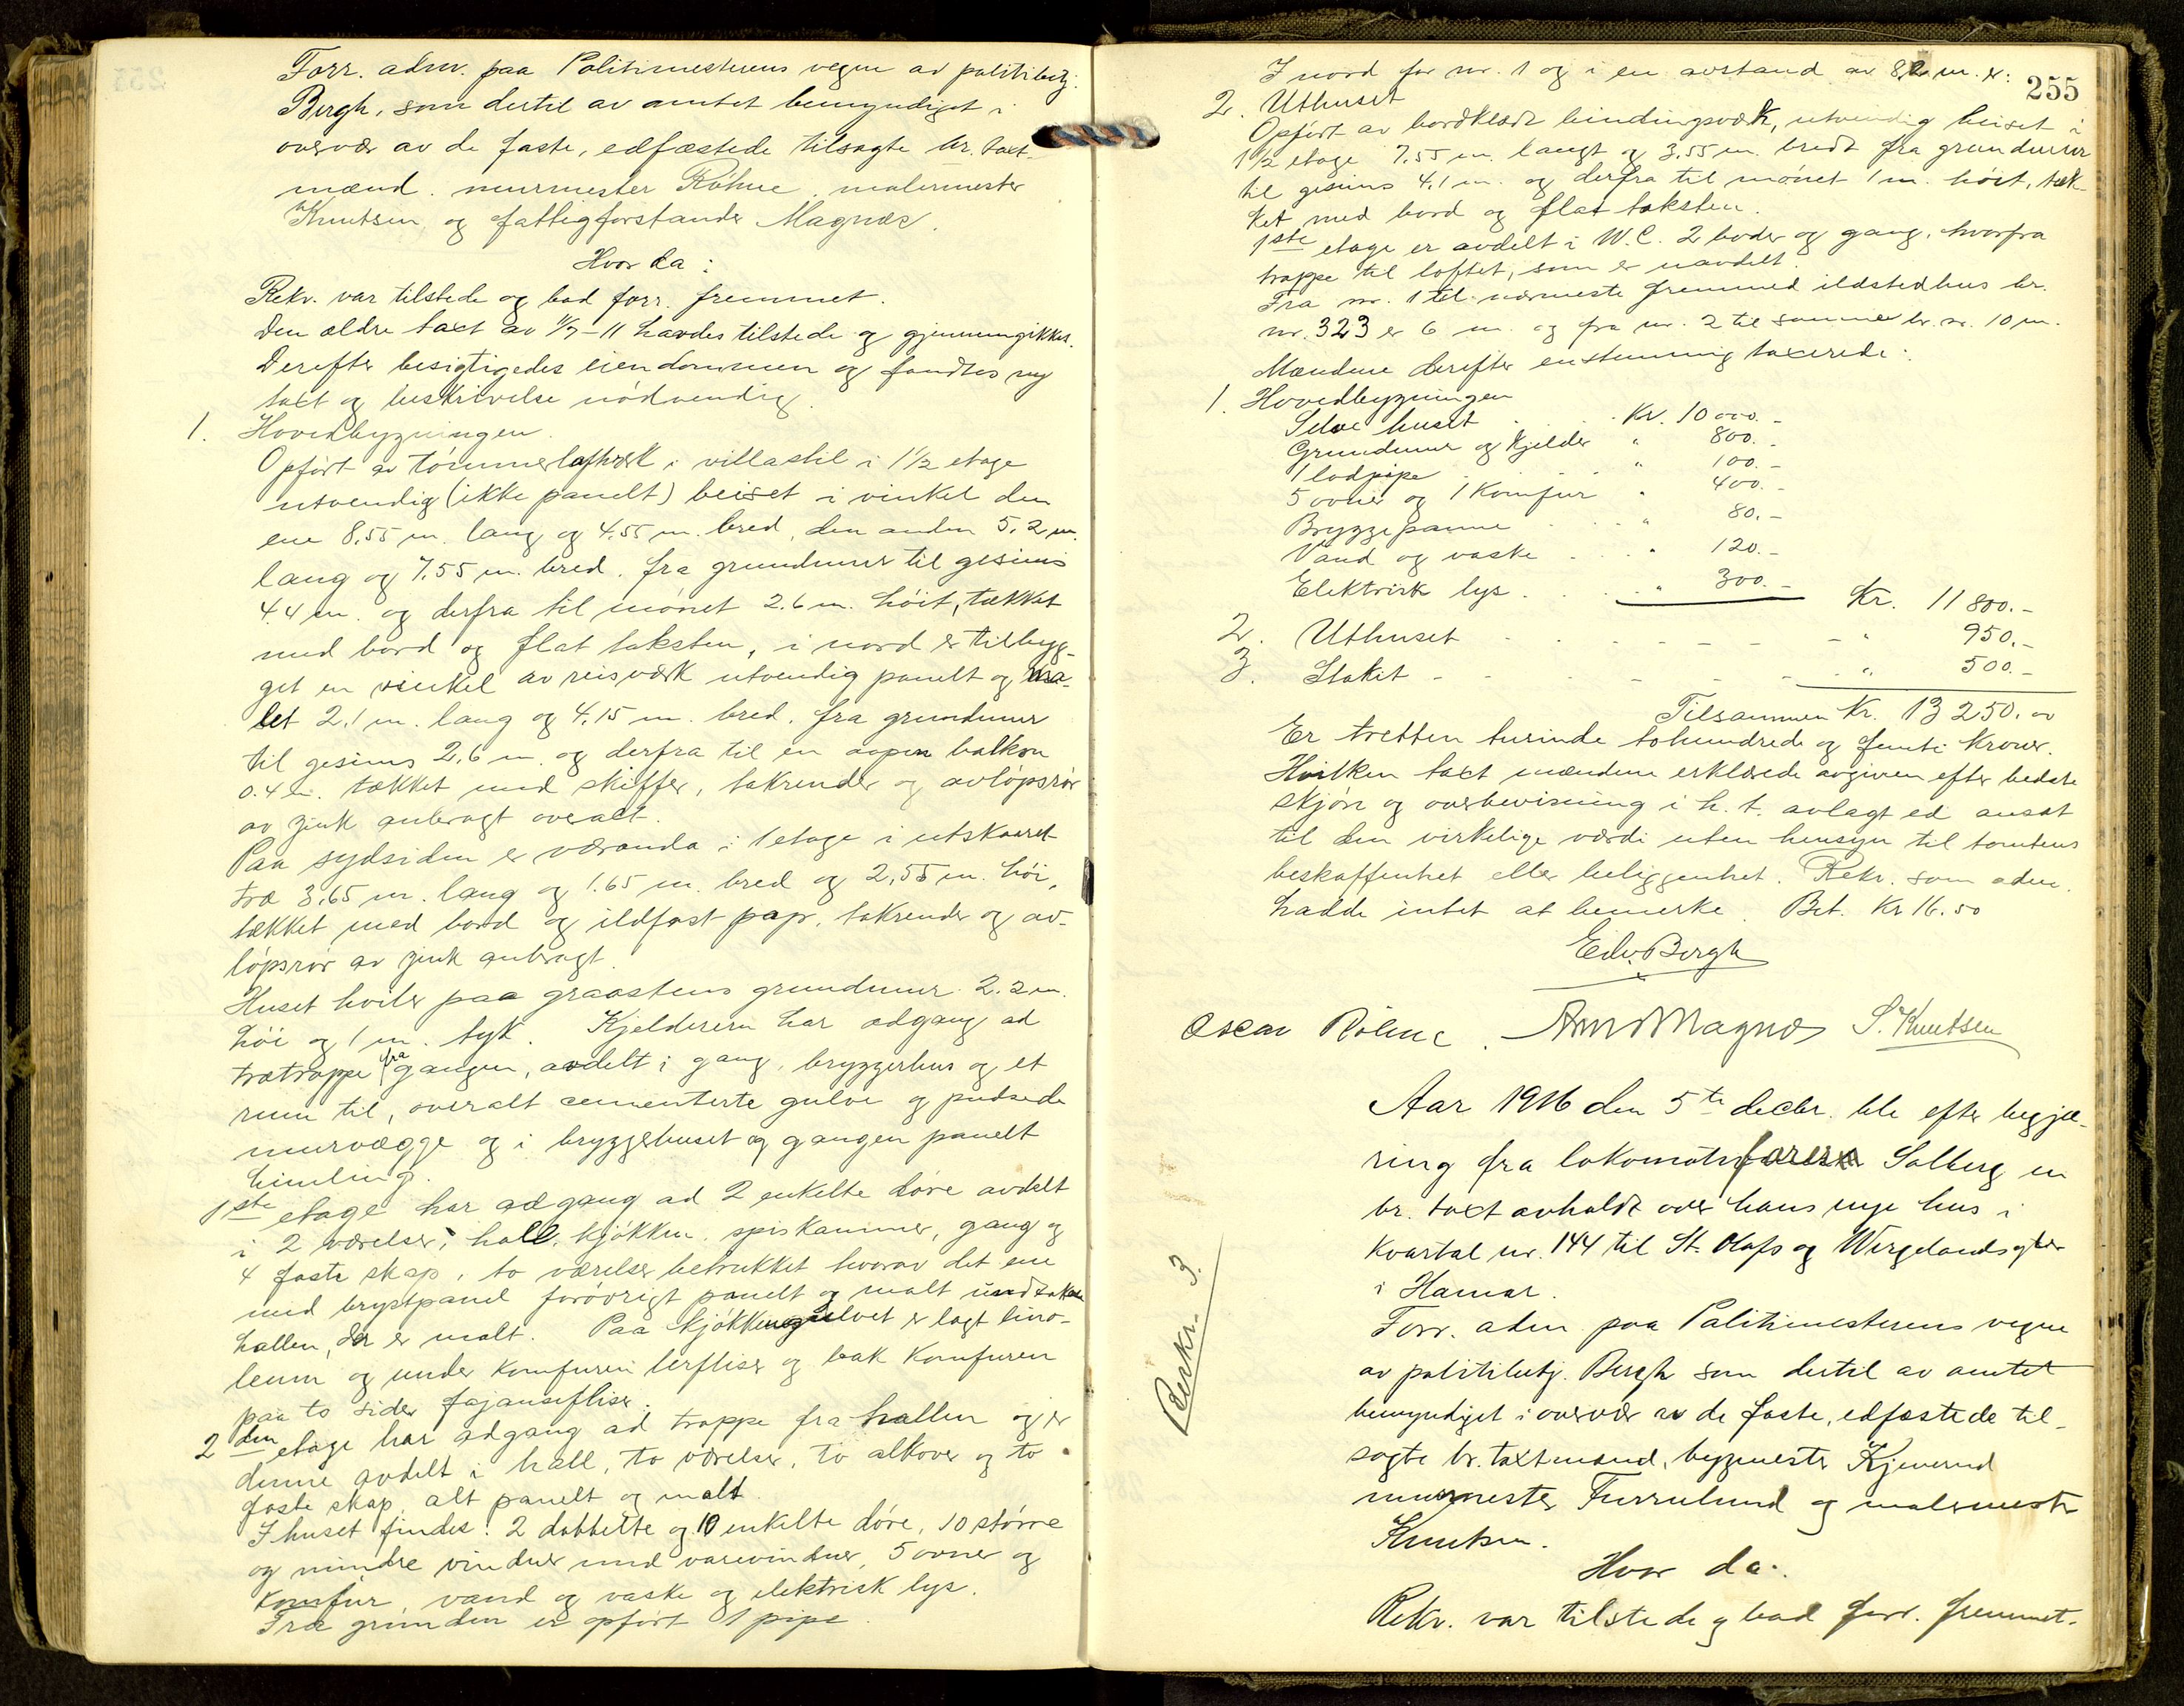 Forr. adm. paa Politimesterens vegne av politibetj.
Bergh, som dertil av amtet bemyndiget i
overvær av de faste, edfæstede tilsagte br. taxt-
mænd. murmester Röhne, malermester
Knutsen og fattigforstander Magnæs.
Hvor da:
Rekv. var tilstede og bad forr. fremmet.
Den ældre taxt av 1/7-11 havdes tilstede og gjennemgikkes.
Derefter besigtigedes eiendommen og fandtes ny
taxt og beskrivelse nödvendig.
1. Hovedbygningen.
Opfört av tömmerlaftverk i villastil i 1 1/2 etage
utvendig (ikke panelt) beiset i vinkel den
ene 8,55 m. lang og 4,55 m. bred, den anden 5,2 m.
lang og 7,55 m. bred, fra grundmur til gesims
4.4 m. og derfra til mönet 2.6 m. höit, tækket
med bord og flat taksten, i nord er tilbyg-
get en vinkel av reisværk utvendig panelt og ma-
let 2,1 m. lang og 4,15 m. bred, fra grundmur
til gesims 2,6 m. og derfra til en aapen balkon
0.4 m. tækket med skiffer, takrender og avlöpsrör
av zink anbragt overalt.
Paa sydsiden er væranda i 1 etage i utskaaret
træ 3,65 m. lang og 1.65 m. bred og 2,55 m. höi,
tækket med bord og ildfast pap, takrender og av-
löpsrör av zink anbragt.
Huset hviler paa graastens grundmur 2.2 m.
höi og 1 m. tyk. Kjelderen har adgang ad
trætrappe fra gangen, avdelt i gang, bryggerhus og et
rum til, overalt cementerte gulve og pudsede
murvægge og i bryggehuset og gangen panelt
himling.
1ste etage har adgang ad 2 enkelte döre avdelt
i 2 værelser, hall, kjökken, spiskammer, gang og
4 faste skap, to værelser betrukket hvorav det ene
med brystpanel forövrigt panelt og malt undtaken
hallen, der er malt. Paa kjökkengulvet er lagt lino-
leum og under komfuren lerfliser og bak komfuren
paa to sider fajansefliser.
2den etage har adgang ad trappe fra hallen og er
denne avdelt i hall, to værelser, to alkover og to
faste skap, alt panelt og malt.
I huset findes: 2 dobbelte og 10 enkelte döre, 10 större
og mindre vinduer med varevinduer, 5 ovner og
komfur, vand og vaske og elektrisk lys.
Fra grunden er opfört 1 pipe.
255
I nord for nr. 1 og i en avstand av 82 m. er:
2. Uthuset
Opfört av bordklædt bindingsværk, utvendig beiset i
1 1/2 etage 7,55 m. langt og 3,55 m. bredt fra grundmur
til gesims 4,1 m. og derfra til mönet 1 m. höit, tæk-
ket med bord og flat taksten.
1ste etage er avdelt i W.C. 2 boder og gang, hvorfra
trappe til loftet, som er uavdelt.
Fra nr. 1 til nærmeste fremmed ildstedhus br.
nr. 323 er 6 m. og fra nr. 2 til samme br. nr. 10 m.
Mændene derefter enstemmig taxerede:
1. Hovedbygningen
Selve huset . . . Kr. 10 000.-
Grundmur og kjelder " 800.-
1 lodpipe . . . " 100.-
5 ovner og 1 Komfur " 400.-
Bryggepanne . . . " 80.-
Vand og vaske . . . " 120.-
Elektrisk lys . . . " 300.- Kr. 11 800.-
2. Uthuset - - - - - " 950.-
3. Stakit - - - - - " 500.-
Tilsammen Kr. 13 250.00
Er tretten tusinde tohundrede og femti kroner.
Hvilken taxt mændene erklærede avgiven efter bedste
skjön og overbevisning i h. t. avlagt ed ansat
til den virkelige værdi uten hensyn til tomtens
beskaffenhet eller beliggenhet. Rekv. som adm.
hadde intet at bemerke. Bet. Kr 16.50
Edv. Bergh
Oscar Röhne. Arn Magnæs S. Knutsen
Aar 1916 den 5te decbr. ble efter begjæ-
ring fra lokomotivförer Solberg en
br. taxt avholdt over hans nye hus i
Kvartal nr. 144 til St. Olafs og Wergelandsgter
i Hamar.
Forr. adm paa Politimesterens vegne
av politibetj. Bergh som dertil av amtet
bemyndiget i overvær av de faste, edfæstede til-
sagte br. taxtmænd, bygmester Kjeverud
murmester Furulund og malermester
Knutsen.
Hvor da:
Rekv. var tilstede og bad forr. fremmet.
3.